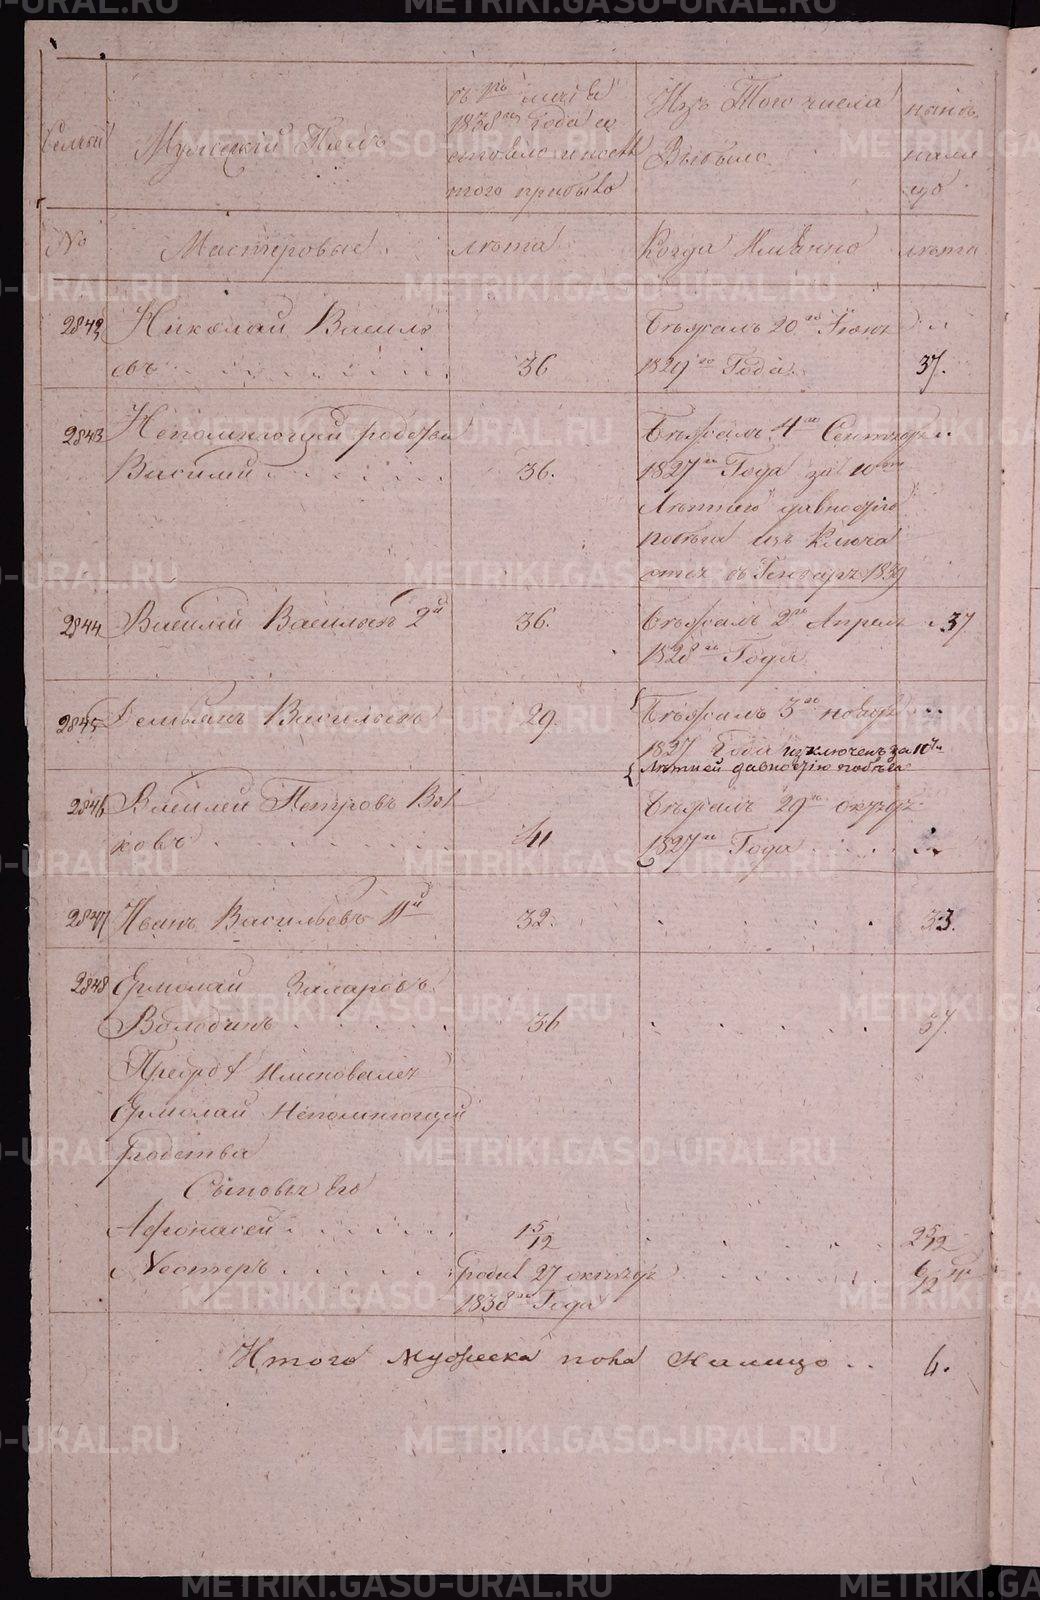 Мужеский Полъ
съ 1го маія
1838го Года со
стояло и после
того прибыло
Изъ Того числа
Выбыло
нынѣ
налицо
№
Мастеровые
лѣта
Когда Имянно
лѣта
2842
Николай Василь
евъ
36
Бѣжалъ 20го Іюня
1829го Года
37.
2843
Непомнющий родства
Василий
36.
Бѣжалъ 4го Сентября
1827го Года за 10ти
Лѣтнего давностію
побѣга изъ Ключа
ется въ Генваре 1839
2844
Василий Васильевъ 2й
36.
Бѣжалъ 2го Апреля
1828го Года
37
2845
Демьянъ Васильевъ
29.
Бѣжалъ 3го ноября
1827 Года изключенъ за 10ти
Лѣтней давностію побѣга
2846
Василей Петровъ Вол
ковъ
41
Бѣжалъ 29го октября
1827го Года
2847
Иванъ Васильевъ 11й
32.
33.
2848
Ермолай Захаровъ
Володинъ
36
37.
Прежде именовался
Ермолай Непомнющий
родства
Сыновья Его
Афонасей
1 5/12
2 5/12
Нестеръ
родил 27 октября
1838го Года
6/12
Итого Мужеска пола Налицо
6.
METRIKI.GASO-URAL.RU